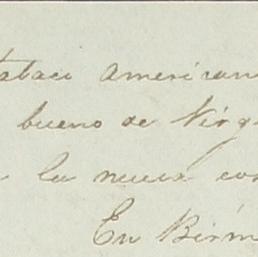 tabaco American
bueno de Virg
la nueva cos
En Birm